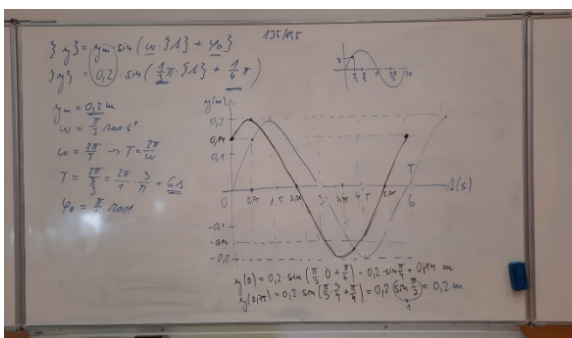 135/195
{y} = ym sin(ω·{t} + φ₀)
{y} = 0,2 · sin(1/3 π·{t} + 1/4 π)
ym = 0,2 m
ω = π/3 rad·s⁻¹
ω = 2π/T ⇒ T = 2π/ω
T = 2π/(π/3) = 2π/1 · 3/π = 6 s
φ₀ = π/4 rad
y(m)
0,2
0,14
0,1
0
0,75
1,5
2,25
3
3,75
4,5
5,25
T
6
t(s)
-0,1
-0,14
-0,2
y(0) = 0,2 · sin(π/3 · 0 + π/4) = 0,2 · sin π/4 = 0,14 m
y(0,75) = 0,2 · sin(π/3 · 3/4 + π/4) = 0,2 · sin π/2 = 0,2 m
1